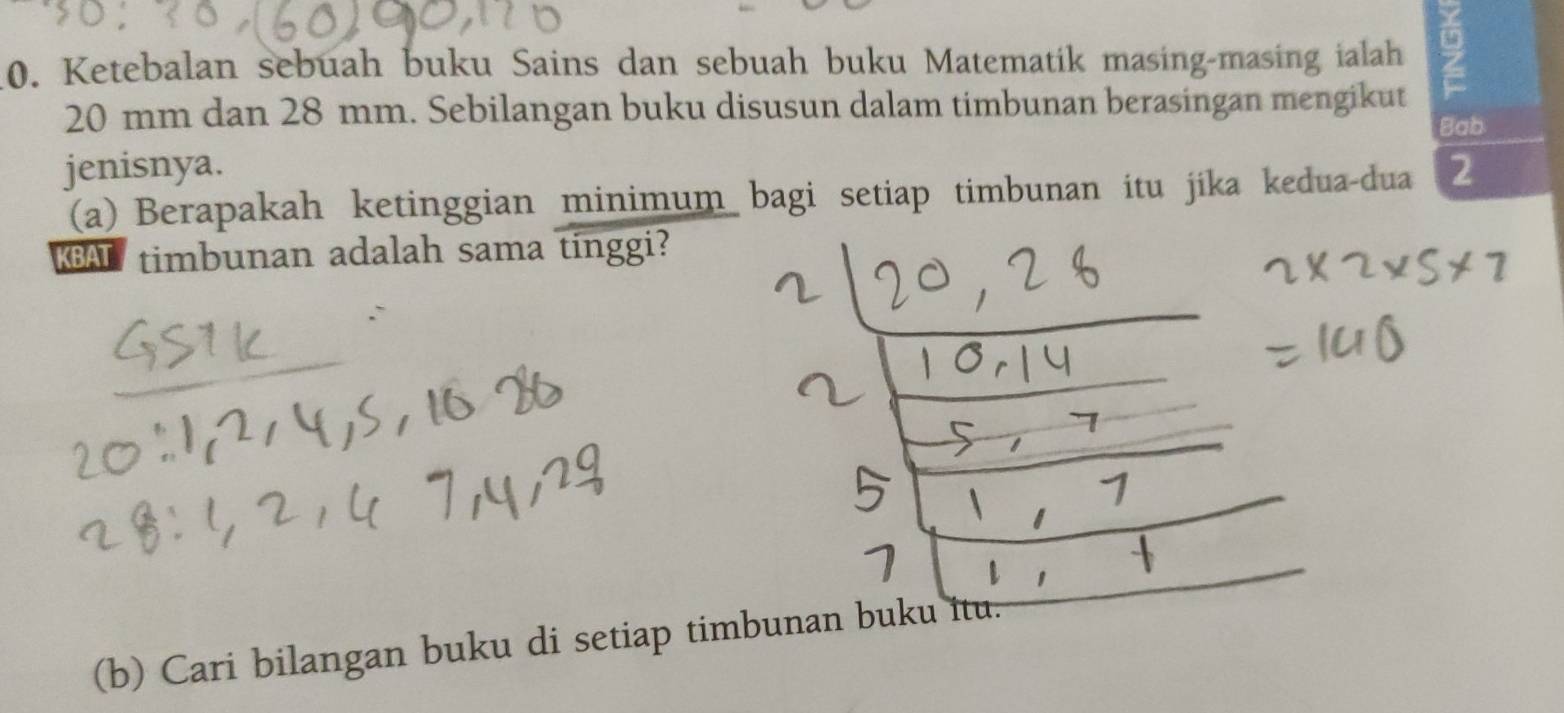 30: 30, (60) 90, 120
0. Ketebalan sebuah buku Sains dan sebuah buku Matematik masing-masing ialah
20 mm dan 28 mm. Sebilangan buku disusun dalam timbunan berasingan mengikut
jenisnya.
(a) Berapakah ketinggian minimum bagi setiap timbunan itu jika kedua-dua
KBAT timbunan adalah sama tinggi?
TINGK
Bab
2
GSTK
20: 1, 2, 4, 5, 10 20
28: 1, 2, 4 7, 14, 28
2 20, 28
2 10, 14
5, 7
5 1, 7
7 1, 1
2 x 2 x 5 x 7
= 140
(b) Cari bilangan buku di setiap timbunan buku itu.